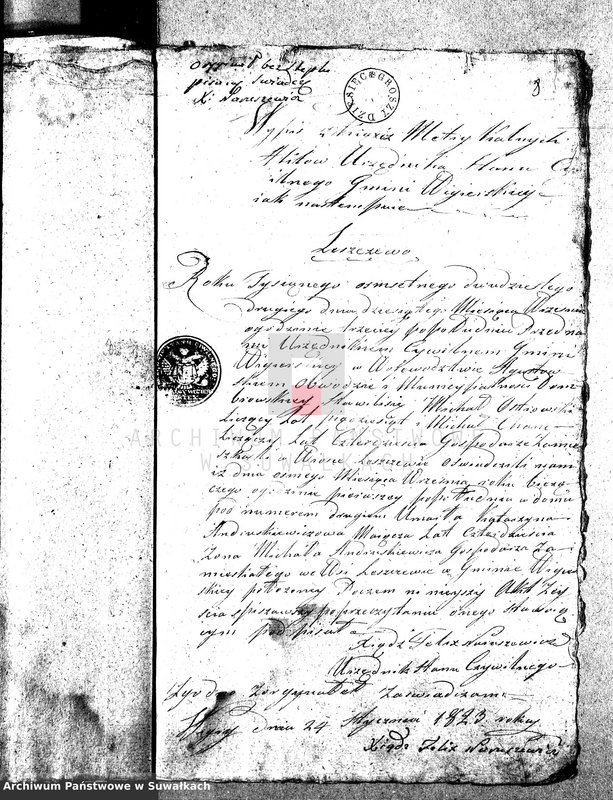 Oryginał bez stępla
pisany świadczy
X. Naruszewicz
DZIESIĘC GROSZY
Wypis z Księgi Metrykalnych
Aktów Urzędnika Stanu Cy
wilnego Gminy Wigierskiey
iak nastempuie
Leszczewo
Roku Tysiącznego osmsetnego dwudziestego
drugiego dnia Miesiąca Września
o godzinie trzeciey popołudniu Przed na
mi Urzędnikiem Cywilnem Gminy
Wigierskiey w Wojewodztwie Augustow
skiem Obwodzie i Municypalności Dom
browskiey stawili się Michał Ostrowski
Liczący Lat Michał
Liczący Lat Czterdzieści Gospodarze Zamie
szkali w Wsi Leszczewie oswiadczyli nam
iż dnia osmego Miesiąca Września roku bieżą
czego o godzinie pierwszey popołudniu w domu
pod numerem drugiem Umarła Katarzyna
Andruskiewiczowa Maiąca Lat Czterdzieścia
Zona Michała Andruskiewicza Gospodarza Za
mieszkałego we Wsi Leszczewie w Gminie Wigier
skiey położoney Poczem ninieyszy Akt Zey
ścia spisawszy po przeczytaniu onego Stawaią
cym podpisał
Xiądz Felix Naruszewicz
Urzędnik Stanu Cywilnego
Zgodno z Oryginałem Zaświadczam
Wigry dnia 24 Stycznia 1823 roku
Xiądz Felix Naruszewicz
ARCHIWUM PAŃSTWOWE
W SUWAŁKACH
Archiwum Państwowe w Suwałkach